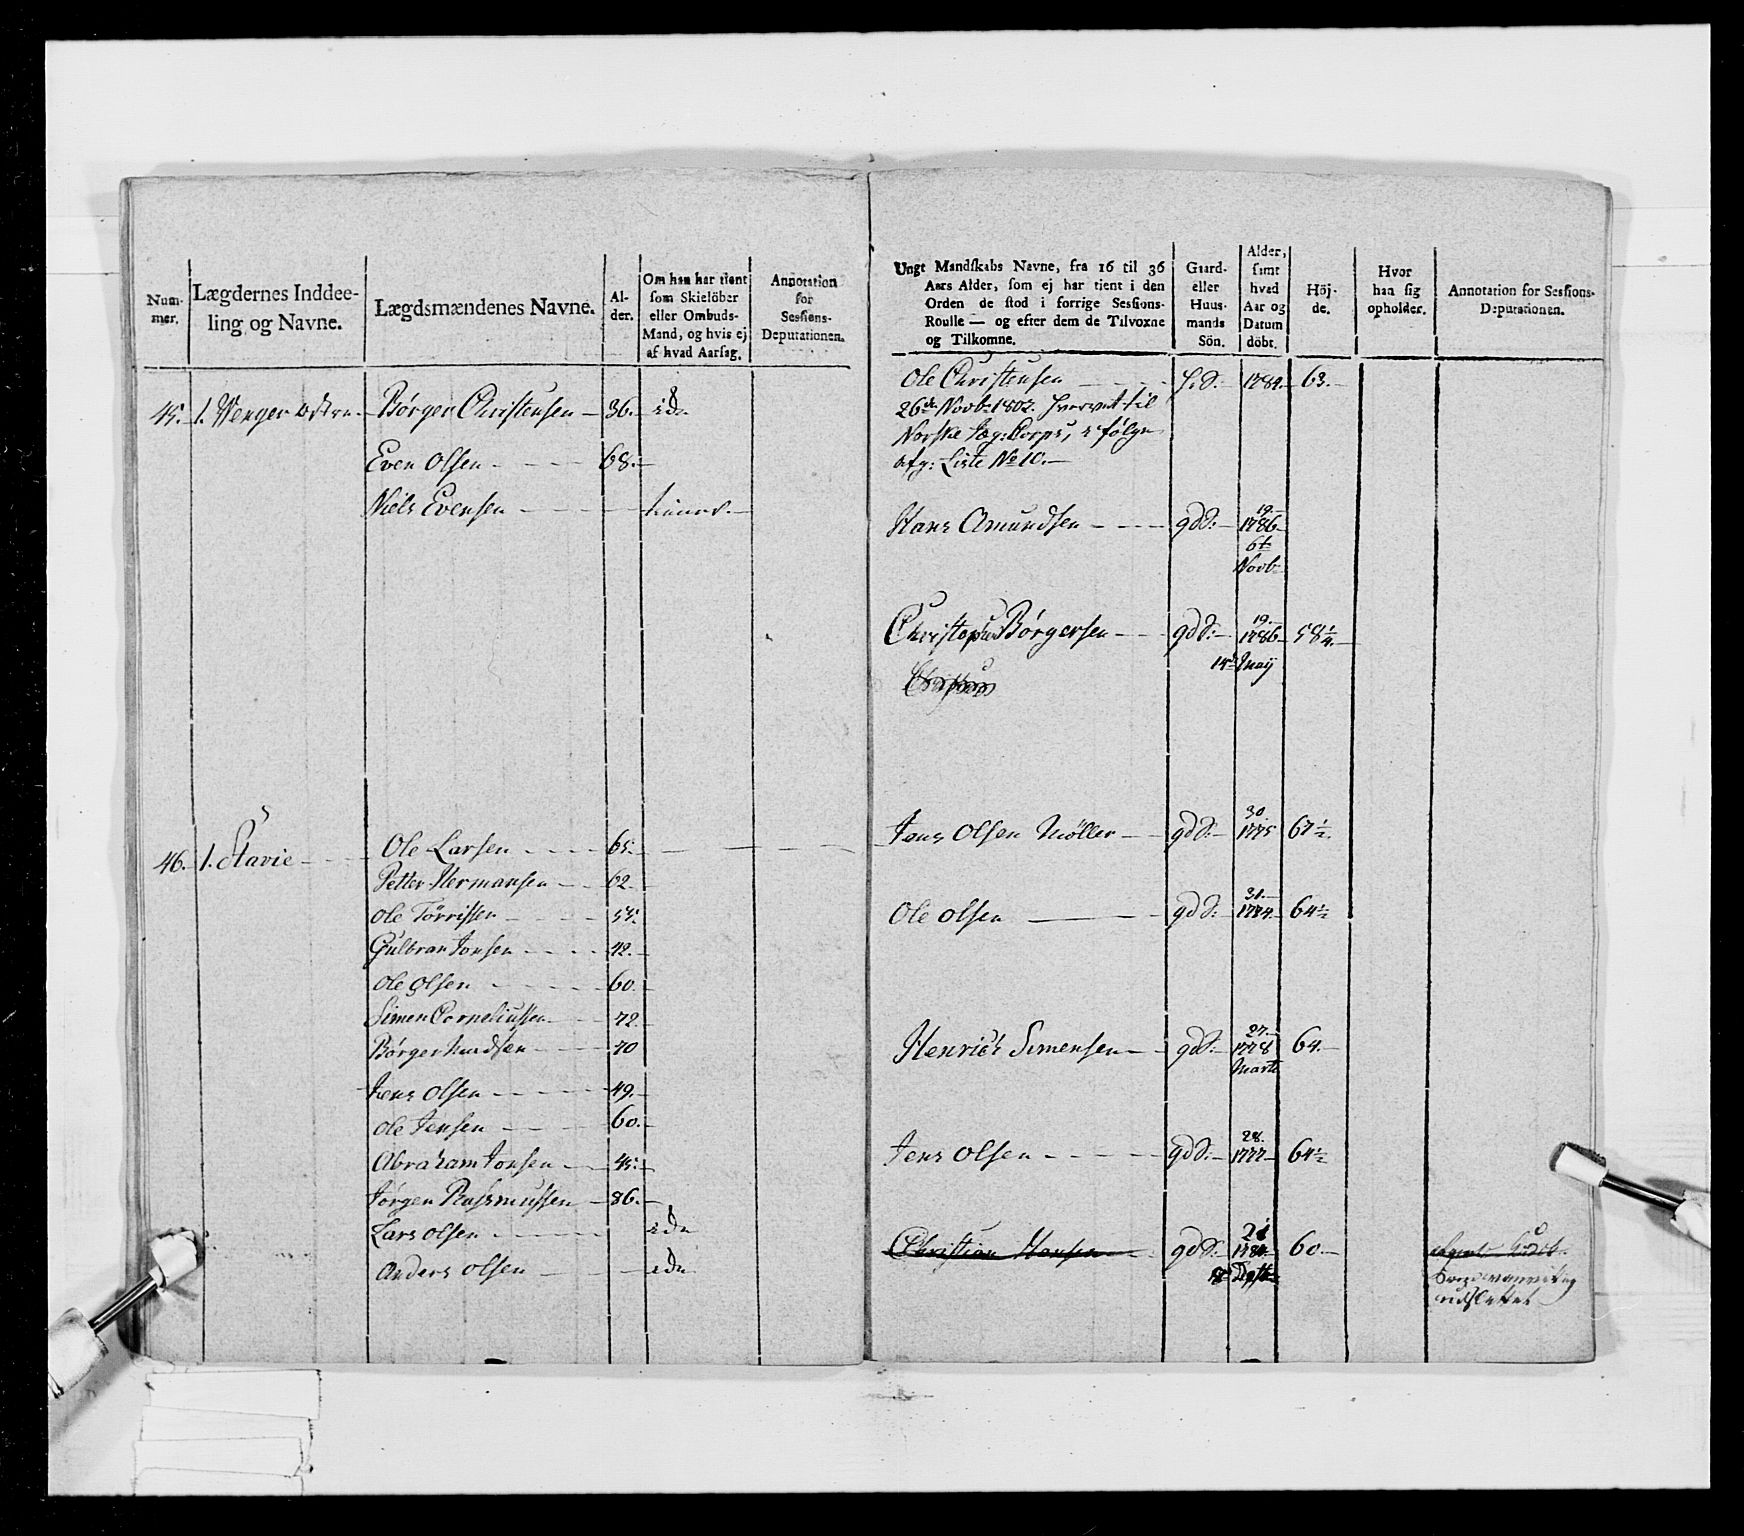 Num-
mer.
Lægdernes Inddee-
ling og Navne.
Lægdsmændenes Navne.
Al-
der.
Om han har tient
som Skielöber
eller Ombuds-
Mand, og hvis ej
af hvad Aarsag.
Annotation
for
Sessions-
Deputationen.
45. 1. Wenger østre Børger Christensen 36.
Even Olsen 68.
Niels Evensen
46. 1. Stavie Ole Larsen 65.
Petter Hermansen 62.
Ole Tørrissen 55.
Gulbran Jonsen 42.
Ole Olsen 60.
Simen Corneliussen 72.
Børger Knudsen 70
Jens Olsen 49.
Ole Jensen 60.
Abraham Jonsen 45.
Jørgen Rasmussen 86.
Lars Olsen
Anders Olsen
Ungt Mandskabs Navne, fra 16 til 36
Aars Alder, som ej har tient i den
Orden de stod i forrige Sessions-
Roulle — og efter dem de Tilvoxne
og Tilkomne.
Gaard-
eller
Huus-
mands
Sön.
Alder,
samt
hvad
Aar og
Datum
döbt.
Höj-
de.
Hvor
han sig
opholder.
Annotation for Sessions-
Deputationen.
Ole Christensen 1784. 63.
26de Novbr 1802. hvervet til
Norske Jæg: Corps, i følge
afg: Liste No 10.
19.
Hans Amundsen gdS: 1786
6te
Novb
19.
Christopher Børgersen gdS: 1786 58 1/4.
14de Maij
30.
Jens Olsen Møller gdS: 1775 67 1/2.
Ole Olsen gdS: 1774 64 1/2
27.
Henrich Simensen gdS: 1778 64.
Marti
28.
Jens Olsen gdS: 1777 64 1/2
Christian Hansen gdS: 60.
udslettet